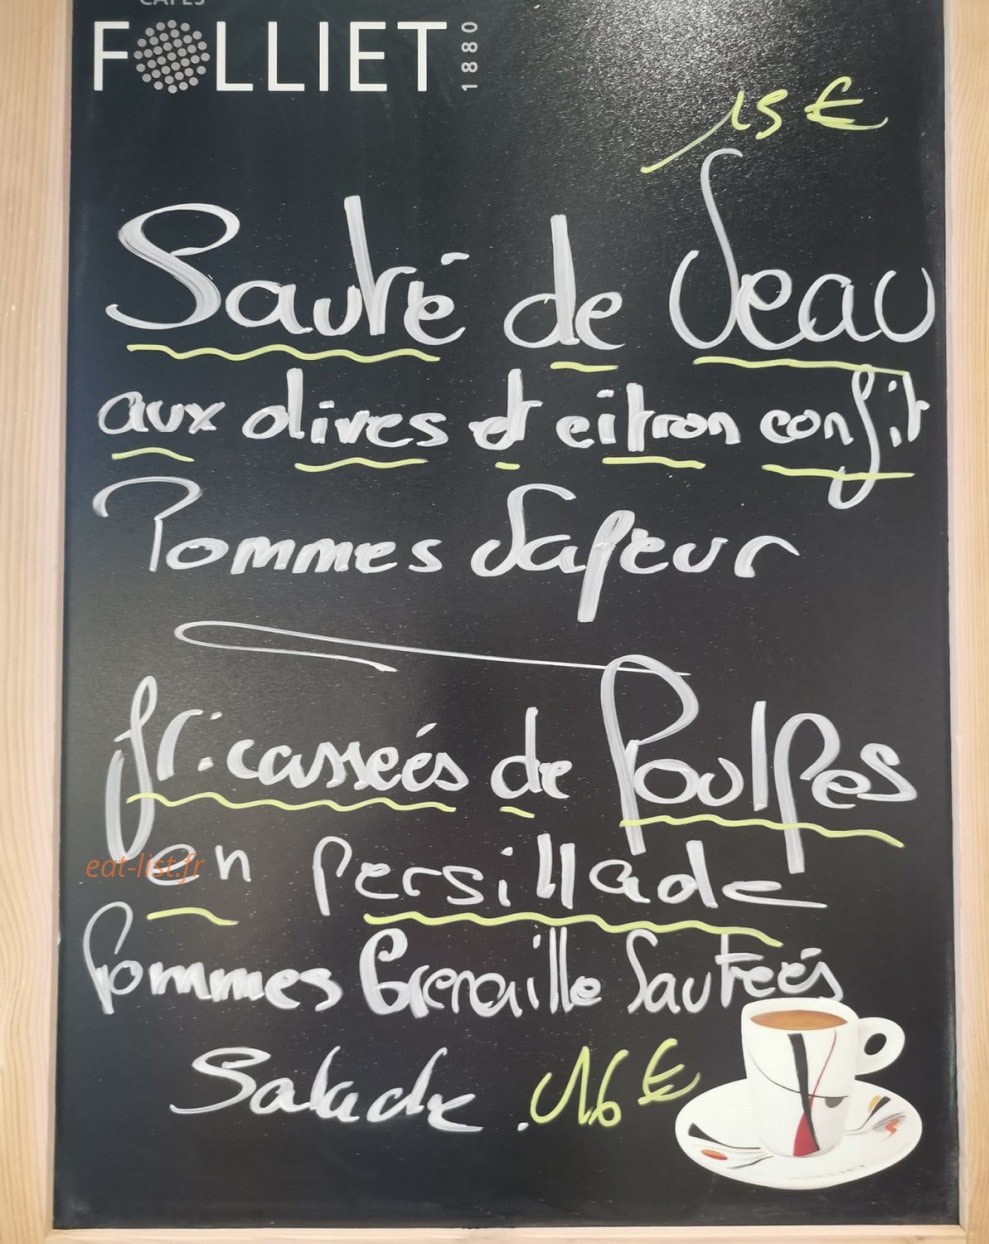 CAFÉS
FOLLIET 1880
15 €
Sauté de Veau
aux olives et citron confit
Pommes Vapeur
fricasseés de Poulpes
en persillade
eat-list.fr
Pommes Grenaille Sauteés
Salade 16 €